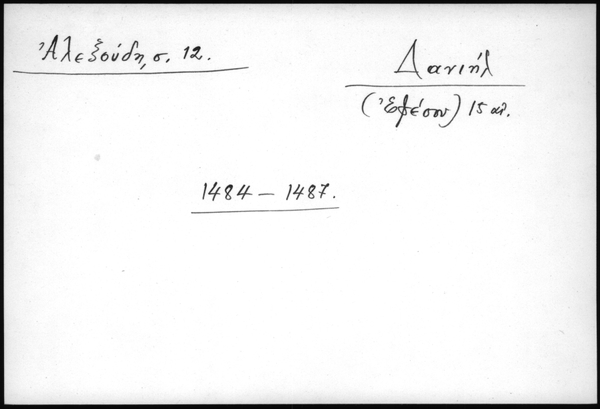 Ἀλεξούδη, σ. 12.
Δανιήλ
(Ἐφέσου) 15 αἰ.
1484 – 1487.